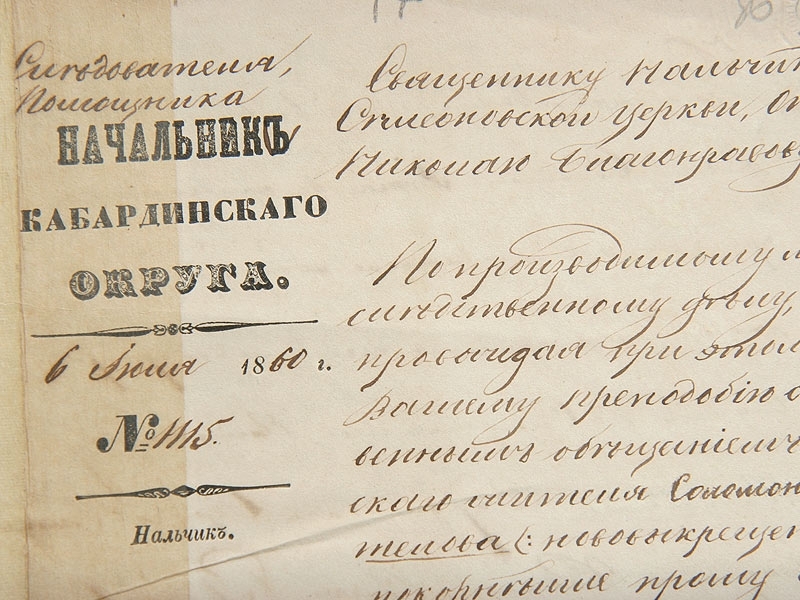 Слѣдователя,
Помощника
НАЧАЛЬНИКЪ
КАБАРДИНСКАГО
ОКРУГА.
6 Іюля 1860 г.
№ 1115.
Нальчикъ.
Священнику Нальчик
Симеоновской церкви, От
Николаю Благонравову
По производимому
слѣдственному дѣлу,
препровождая при этом
Вашему преподобію
веннымъ обѣщаніемъ
скаго жителя Соломон
телова (: нововыкрещен
покорнѣйше прошу